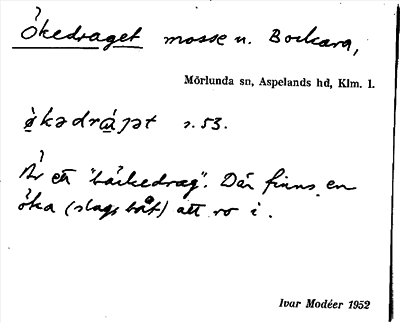 Ökedraget mosse u. Bockara,
Mörlunda sn, Aspelands hd, Klm. l.
s. 53.
Är ett "båckedrag". Där finns en
öka (slags båt) att ro i.
Ivar Modéer 1952